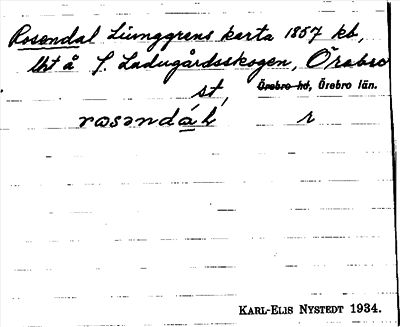 Rosendal Ljunggrens karta 1857 kb,
lht å f. Ladugårdsskogen, Örebro
st,
Örebro hd, Örebro län.
rosəndá̲l r
KARL-ELIS NYSTEDT 1934.